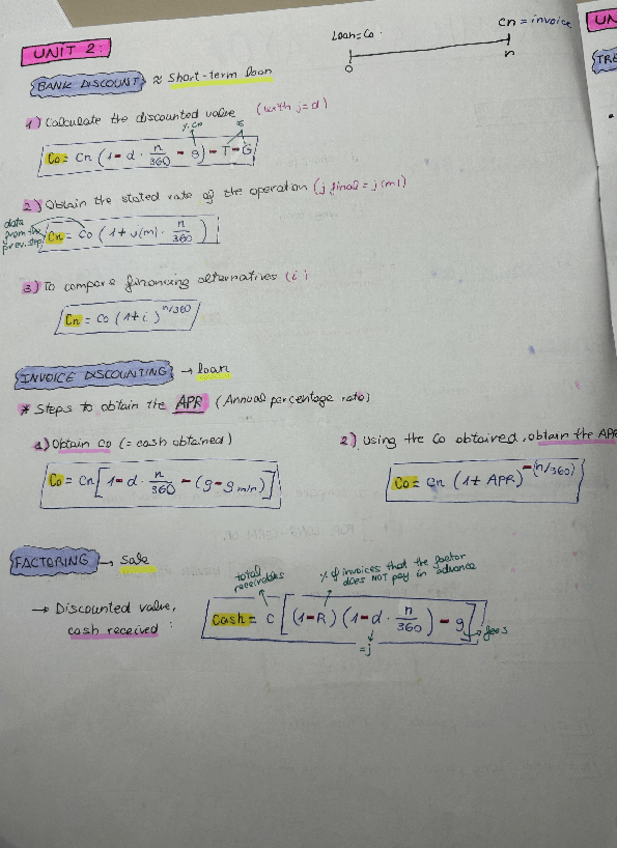 Loan = Co
Cn = invoice
0
n
UNIT 2:
BANK DISCOUNT ≈ Short-term loan
1) Calculate the discounted value (with j=d)
% Cn
€
Co = Cn (1 - d · n/360 - g) - T - G
2) Obtain the stated rate of the operation (j final = j(m))
data from the prev. step
Cn = Co (1 + j(m) · n/360)
3) To compare financing alternatives (i)
Cn = Co (1+i)^n/360
INVOICE DISCOUNTING → loan
* Steps to obtain the APR (Annual percentage rate)
1) Obtain Co (= cash obtained)
Co = Cn [1 - d · n/360 - (g - g min)]
2) Using the Co obtained, obtain the APR
Co = Cn (1 + APR)^-(n/360)
FACTORING → Sale
total receivables
% of invoices that the factor
does NOT pay in advance
→ Discounted value,
cash received:
Cash = C [(1-R) (1 - d · n/360) - g]
→ fees
= j
UN
TRE